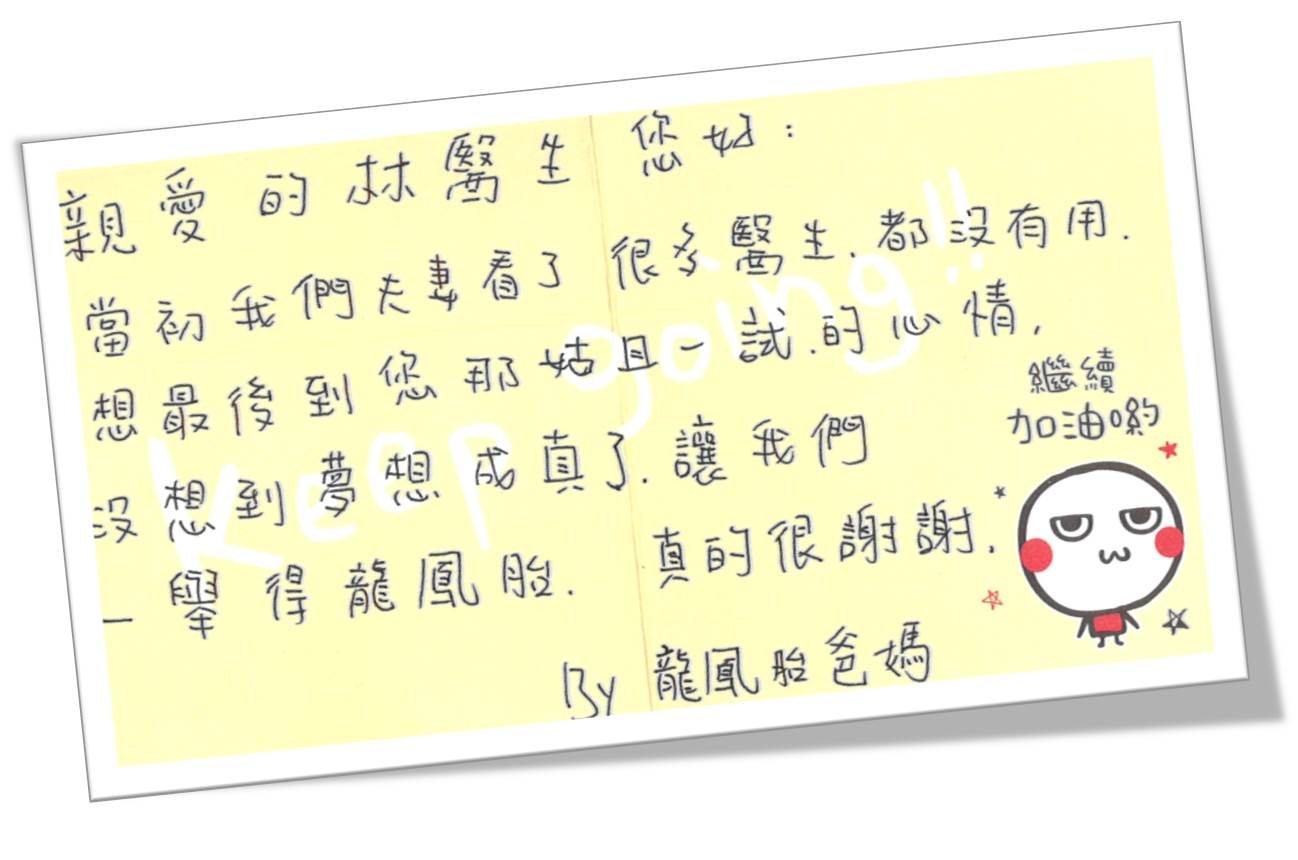 親愛的林醫生 您好：
當初我們夫妻看了很多醫生.都沒有用.
想最後到您那姑且一試.的心情,
沒想到夢想成真了.讓我們
一舉得龍鳳胎. 真的很謝謝.
By 龍鳳胎爸媽
繼續
加油喲
keep going!!